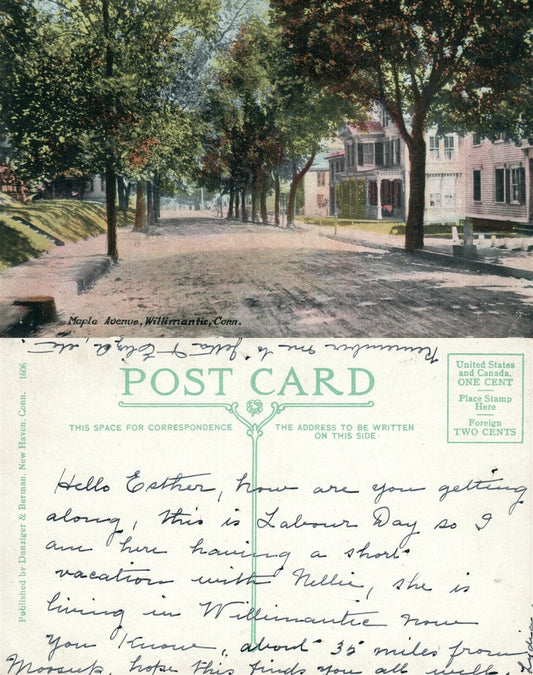 Maple Avenue, Willimantic, Conn.
Remember me to Jetta & Eliza, etc.
POST CARD
THIS SPACE FOR CORRESPONDENCE
THE ADDRESS TO BE WRITTEN
ON THIS SIDE
United States
and Canada,
ONE CENT
Place Stamp
Here
Foreign
TWO CENTS
Published by Danziger & Berman, New Haven, Conn. 1606
Hello Esther, how are you getting
along, this is Labour Day so I
am here having a short
vacation with Nellie, she is
living in Willimantic now
you know, about 35 miles from
Moosup, hope this finds you all well,
Lydia